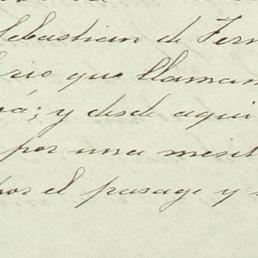 Sebastian de Fern
rio que llaman
á; y desde aqui
por una mesit
por el pasage y